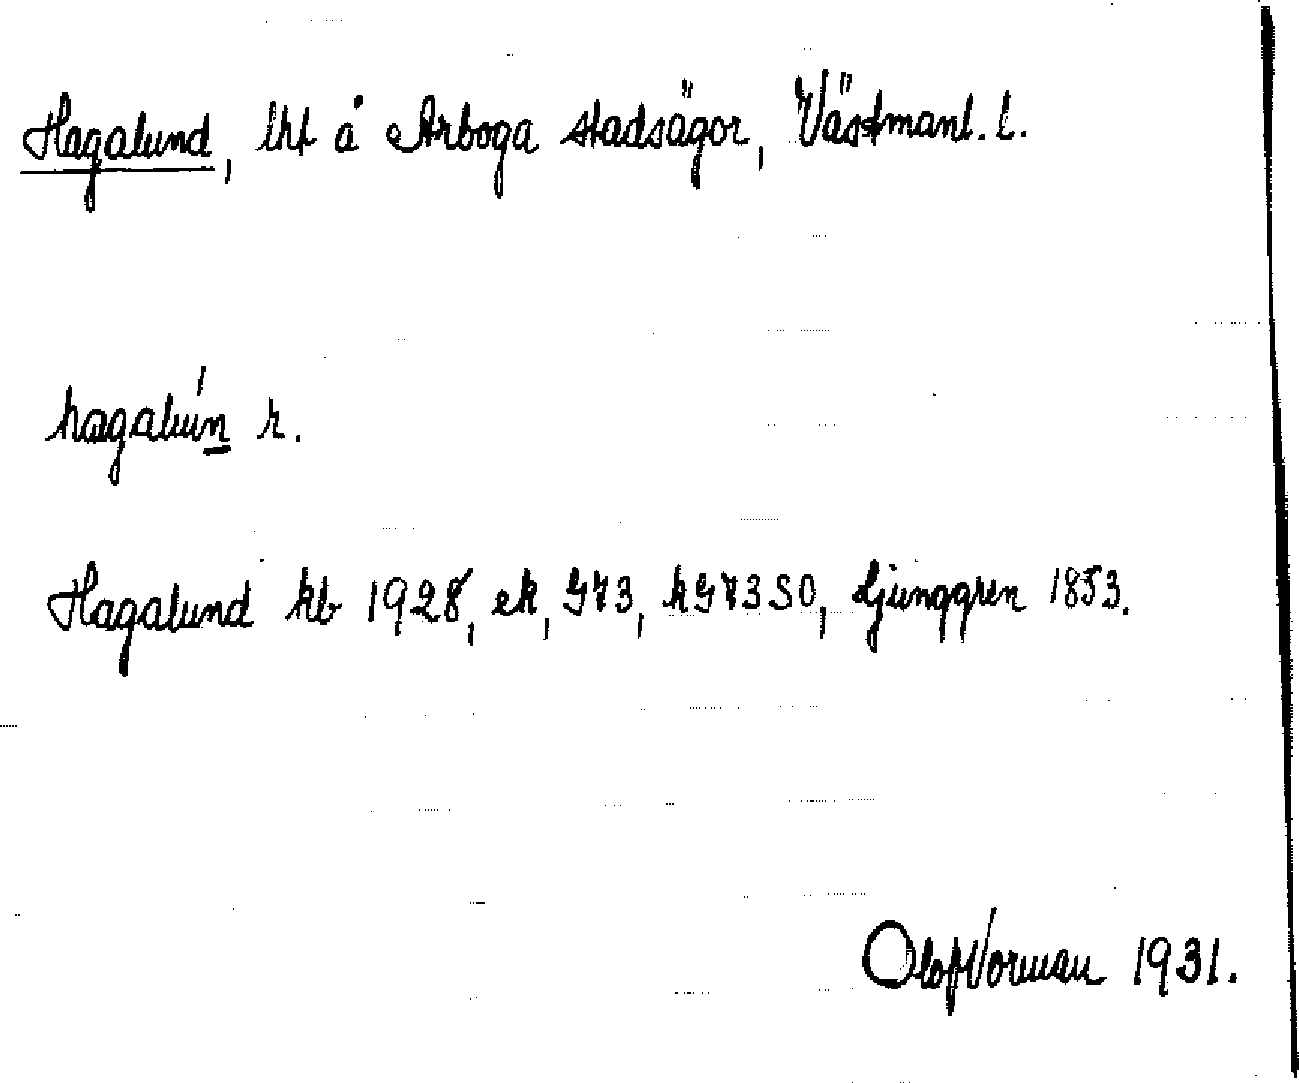 Hagalund, lht å Arboga stadsägor, Västmanl. l.
hagalún r.
Hagalund kb 1928, ek, G73, kG73SO, Ljunggren 1853.
Olof Norman 1931.